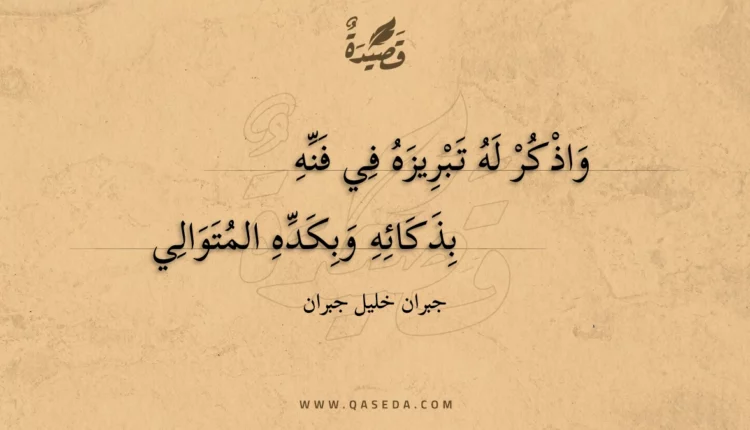 قَصِيْدَةٌ
وَاذْكُرْ لَهُ تَبْرِيزَهُ فِي فَنِّهِ
بِذَكَائِهِ وَبِكَدِّهِ المُتَوَالِي
جبران خليل جبران
WWW.QASEDA.COM